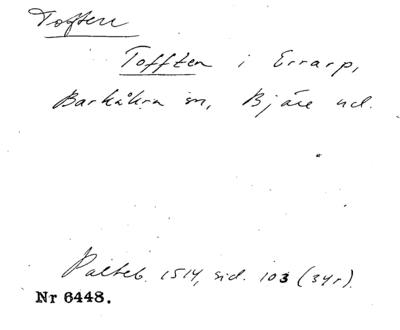 Toften
Tofften i Errarp,
Barkåkra sn, Bjäre hd.
Palteb. 1514, sid. 103 (34r).
Nr 6448.